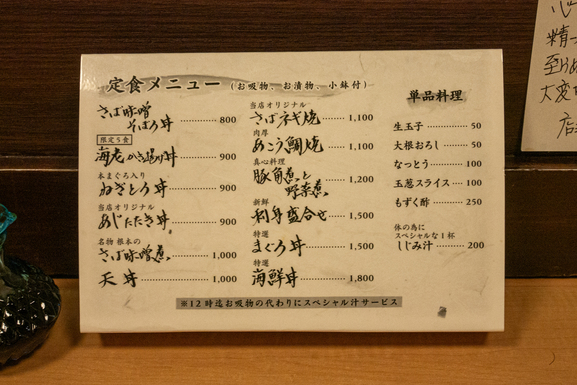 定食メニュー (お吸物、お漬物、小鉢付)
さば味噌
そぼろ丼 800
限定5食
海老かき揚げ丼 900
本まぐろ入り
ねぎとろ丼 900
当店オリジナル
あじたたき丼 900
名物 根本の
さば味噌煮 1,000
天丼 1,000
当店オリジナル
さばネギ焼 1,100
肉厚
あこう鯛焼 1,100
真心料理
豚角煮と
野菜煮 1,200
新鮮
刺身盛合せ 1,500
特選
まぐろ丼 1,500
特選
海鮮丼 1,800
単品料理
生玉子 50
大根おろし 50
なっとう 100
玉葱スライス 100
もずく酢 250
体の為に
スペシャルな1杯
しじみ汁 200
※12時迄お吸物の代わりにスペシャル汁サービス
心
精一
大変
店